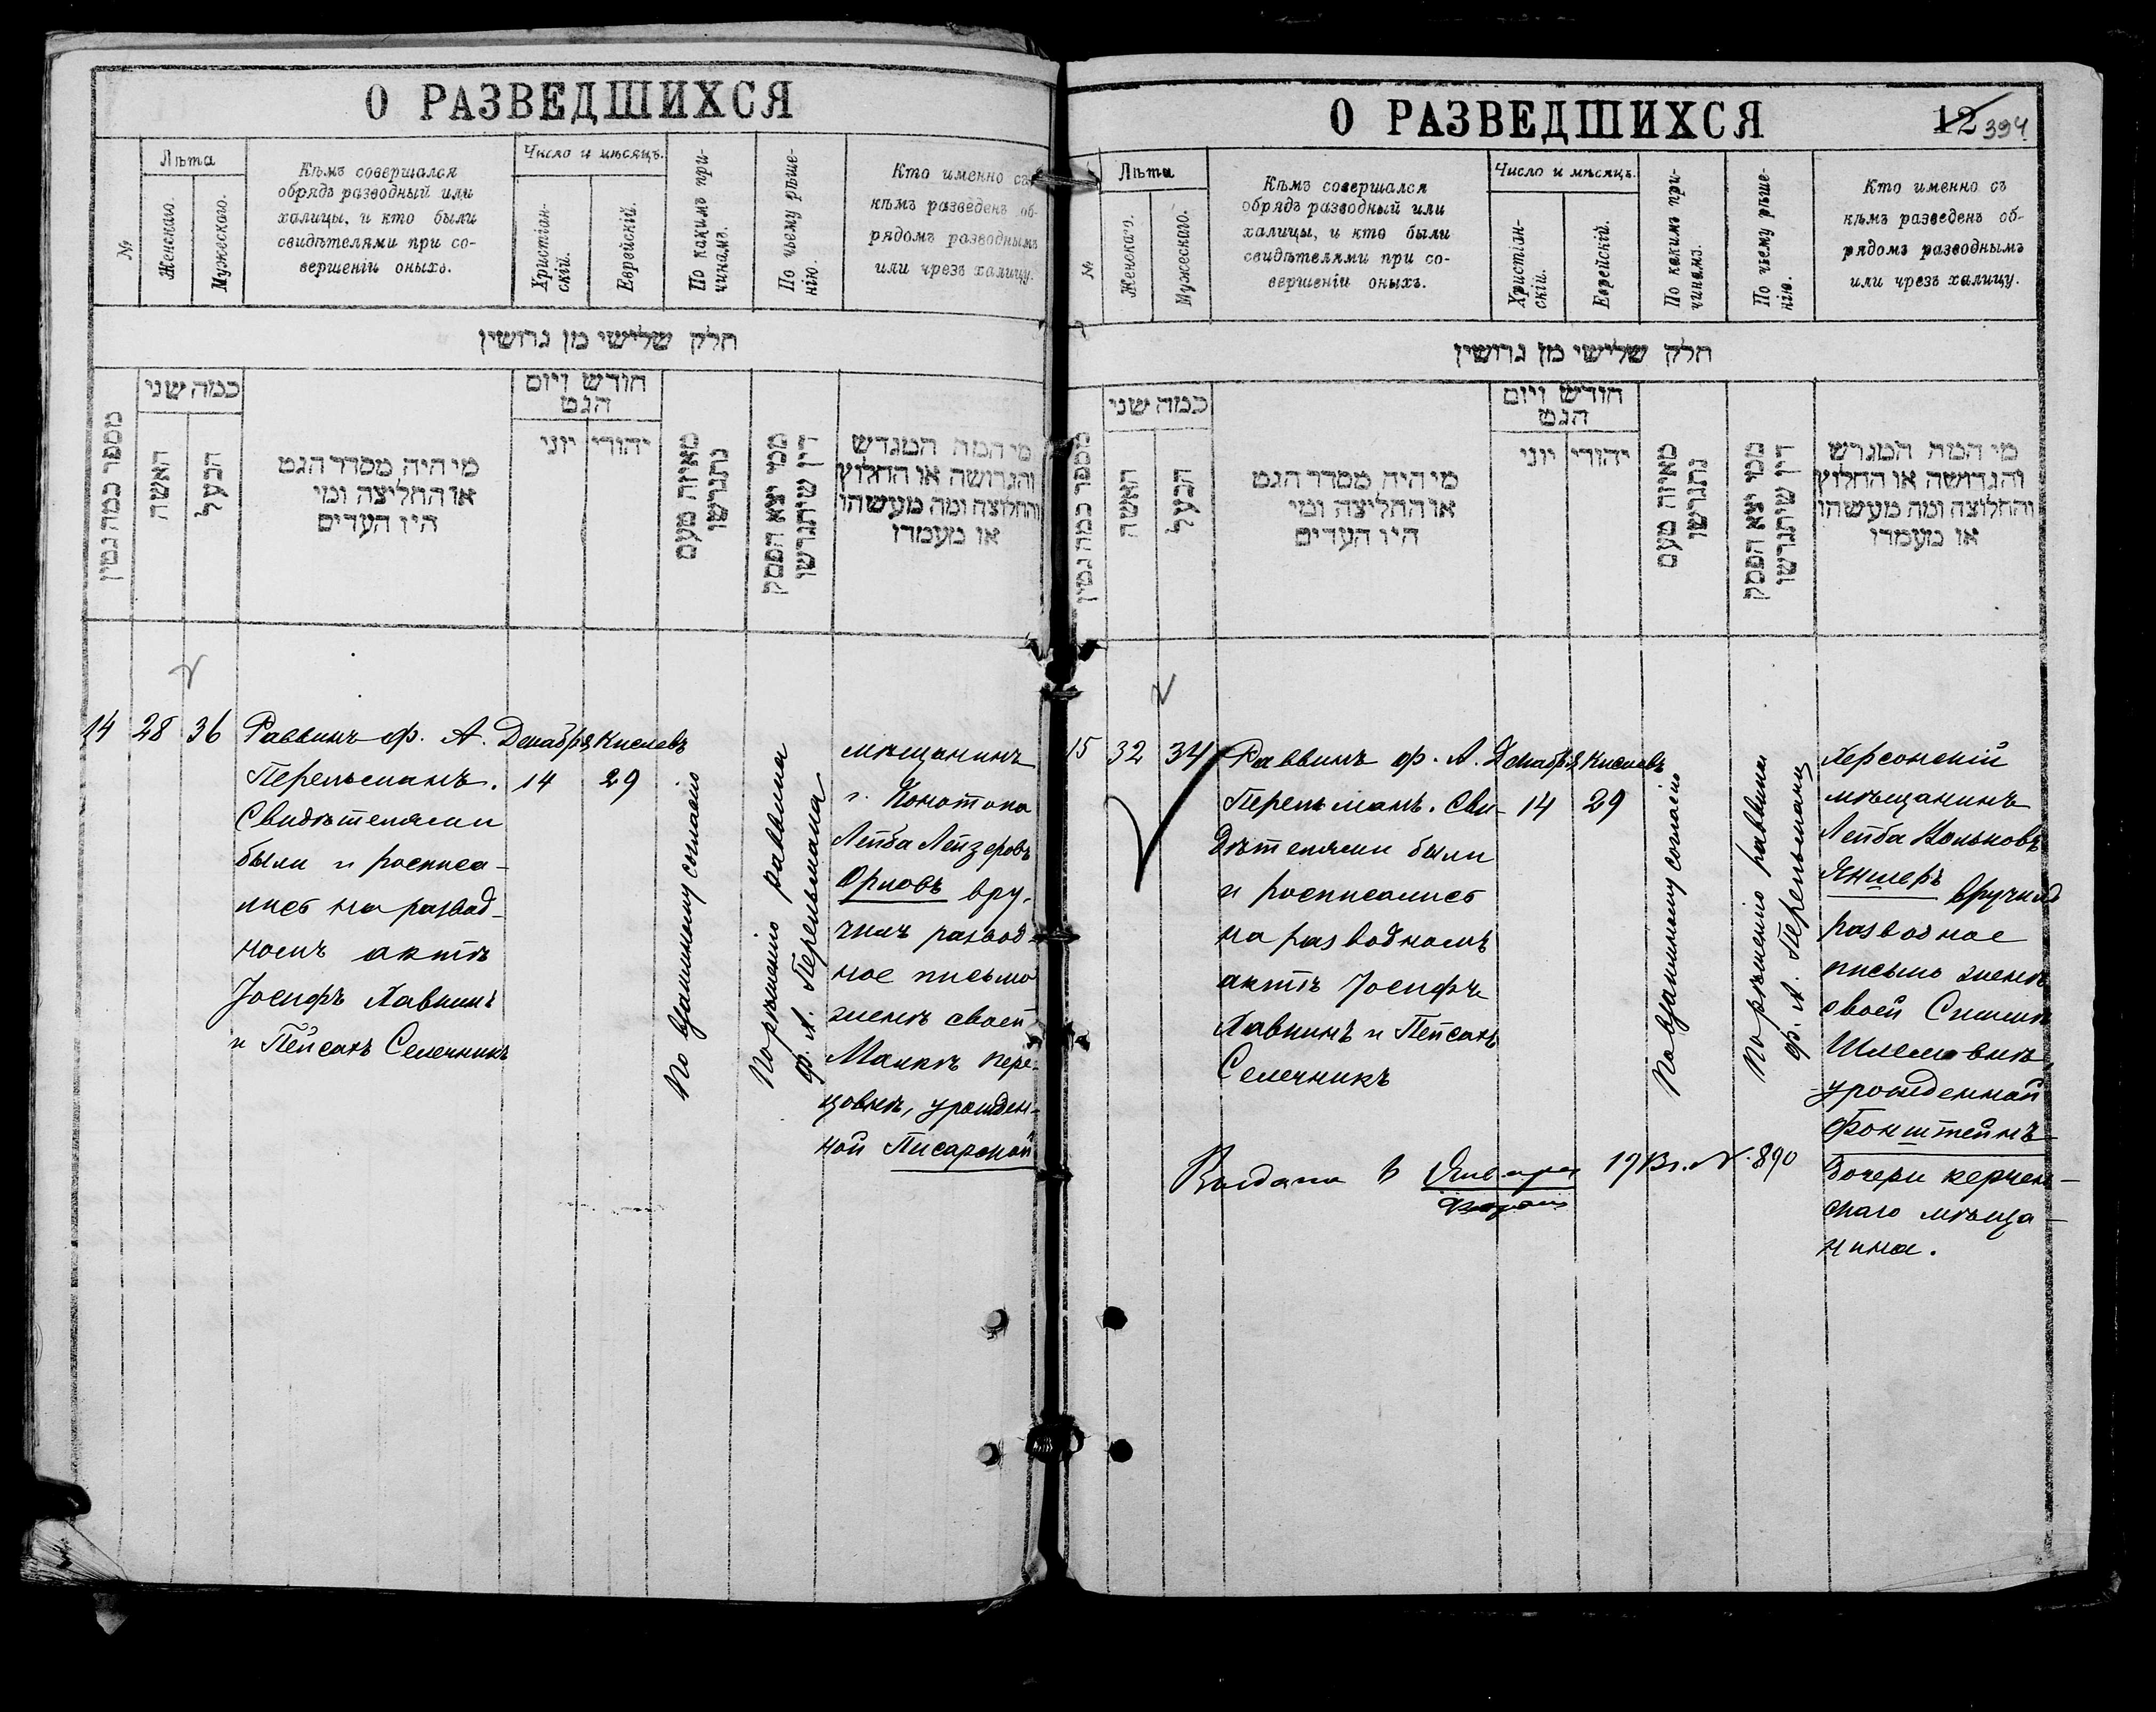 О РАЗВЕДШИХСЯ
№
Лѣта
Женскаго.
Мужескаго.
Кѣмъ совершался
обрядъ разводный или
халицы, и кто были
свидѣтелями при со-
вершеніи оныхъ.
Число и мѣсяцъ.
Христіан-
скій.
Еврейскій.
По какимъ при-
чинамъ.
По чьему рѣше-
нію.
Кто именно съ
кѣмъ разведенъ об-
рядомъ разводнымъ
или чрезъ халицу.
חלק שלישי מן גרושין
מספר כמה גטין
כמה שני
האשה
הבעל
מי היה מסדר הגט
או החליצה ומי
היו העדים
חודש ויום
הגט
יוני
יהודי
מאיזה טעם
נתגרשו
ממי יצא הפסק
דין שיתגרשו
מי המה המגרש
והגרושה או החלוץ
והחלוצה ומה מעשהו
או מעמדו
14
28
36
Раввинъ Ф. А.
Перельманъ.
Свидѣтелями
были и росписа-
лись на развод-
номъ актѣ
Іосифъ Хавкинъ
и Пейсахъ Селечникъ
Декабря
14
Кислевъ
29
По взаимному согласію
По рѣшенію раввина
Ф. А. Перельмана
мѣщанинъ
г. Конотопа
Лейба Лейзеровъ
Орловъ вру-
чилъ развод
ное письмо
женѣ своей
Малкѣ Пере-
цовнѣ, урожден-
ной Писарской
О РАЗВЕДШИХСЯ
12
394
№
Лѣта
Женскаго.
Мужескаго.
Кѣмъ совершался
обрядъ разводный или
халицы, и кто были
свидѣтелями при со-
вершеніи оныхъ.
Число и мѣсяцъ.
Христіан-
скій.
Еврейскій.
По какимъ при-
чинамъ.
По чьему рѣше-
нію.
Кто именно съ
кѣмъ разведенъ об-
рядомъ разводнымъ
или чрезъ халицу.
חלק שלישי מן גרושין
מספר כמה גטין
כמה שני
האשה
הבעל
מי היה מסדר הגט
או החליצה ומי
היו העדים
חודש ויום
הגט
יוני
יהודי
מאיזה טעם
נתגרשו
ממי יצא הפסק
דין שיתגרשו
מי המה המגרש
והגרושה או החלוץ
והחלוצה ומה מעשהו
או מעמדו
15
32
34
Раввинъ Ф. А.
Перельманъ. Сви-
дѣтелями были
и росписались
на разводномъ
актѣ Іосифъ
Хавкинъ и Пейсахъ
Селечникъ
Декабря
14
Кислевъ
29
По взаимному согласію
По рѣшенію раввина
Ф. А. Перельмана
Херсонскій
мѣщанинъ
Лейба
вручилъ
разводное
письмо женѣ
своей
Шлемовнѣ,
урожденной
Фонштейнъ
дочери керчен-
скаго мѣща-
нина.
Выдана в Января 1913 г. № 890